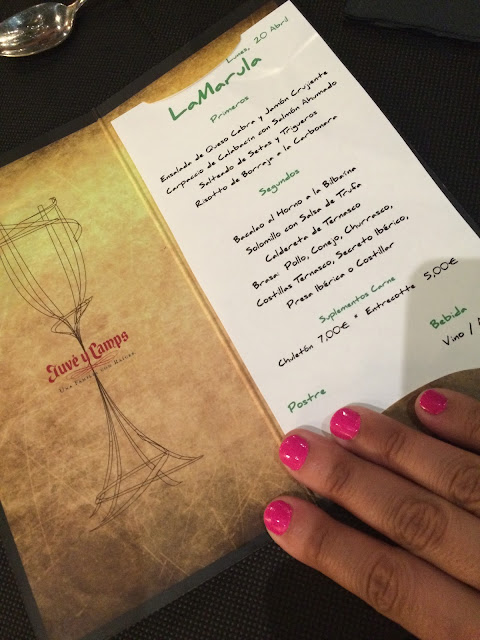 Lunes, 20 Abril
LaMarula
Primeros
Ensalada de Queso Cabra y Jamón Crujiente
Carpaccio de Calabacín con Salmón Ahumado
Salteado de Setas y Trigueros
Risotto de Borraja a la Carbonara
Segundos
Bacalao al Horno a la Bilbaína
Solomillo con Salsa de Trufa
Caldereta de Ternasco
Brasa: Pollo, Conejo, Churrasco,
Costillas Ternasco, Secreto Ibérico,
Presa Ibérica o Costillar
Suplementos Carne
Chuletón 7,00€ * Entrecotte 5,00€
Bebida
Vino /
Postre
Juvé y Camps
Una Familia con Raíces